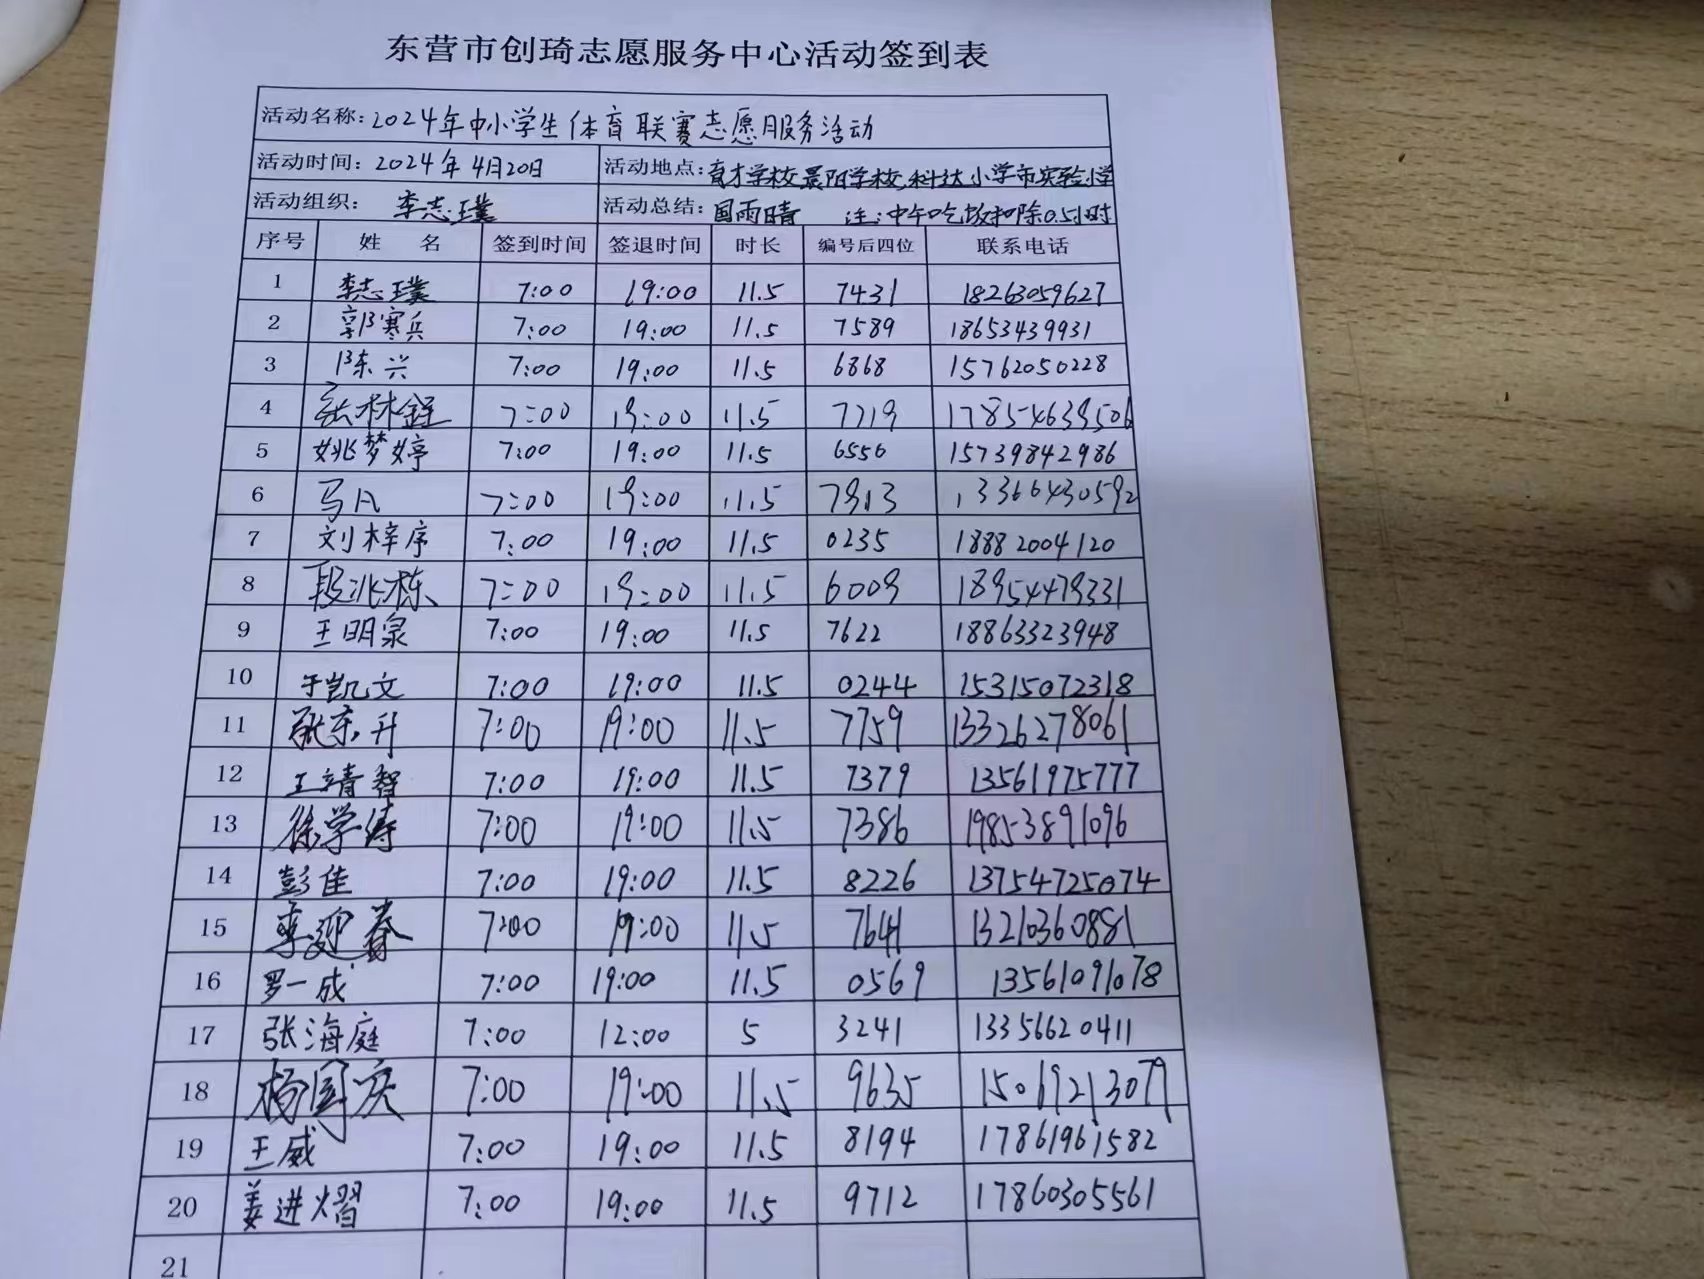 东营市创琦志愿服务中心活动签到表
活动名称: 2024年中小学生体育联赛志愿服务活动
活动时间: 2024年4月20日 活动地点: 育才学校晨阳学校、科达小学市实验小学
活动组织: 李志璞 活动总结: 国雨晴 注:中午吃饭扣除0.5小时
序号 姓 名 签到时间 签退时间 时长 编号后四位 联系电话
1 李志璞 7:00 19:00 11.5 7431 18263059627
2 郭寒兵 7:00 19:00 11.5 7589 18653439931
3 陈兴 7:00 19:00 11.5 6868 15762050228
4 张林锃 7:00 19:00 11.5 7719 17854639506
5 姚梦婷 7:00 19:00 11.5 6556 15739842986
6 马凡 7:00 19:00 11.5 7913 13366430592
7 刘梓序 7:00 19:00 11.5 0235 18882004120
8 段兆栋 7:00 19:00 11.5 6009 18954479331
9 王明泉 7:00 19:00 11.5 7622 18863323948
10 于凯文 7:00 19:00 11.5 0244 15315072318
11 张东升 7:00 19:00 11.5 7759 13326278061
12 王靖智 7:00 19:00 11.5 7379 13561975777
13 徐学涛 7:00 19:00 11.5 7386 19853891096
14 彭佳 7:00 19:00 11.5 8226 13754725074
15 李迎春 7:00 19:00 11.5 7641 13210360881
16 罗一成 7:00 19:00 11.5 0569 13561091078
17 张海庭 7:00 12:00 5 3241 13356620411
18 杨国庆 7:00 19:00 11.5 9635 15069213079
19 王威 7:00 19:00 11.5 8194 17861961582
20 姜进熠 7:00 19:00 11.5 9712 17860305561
21